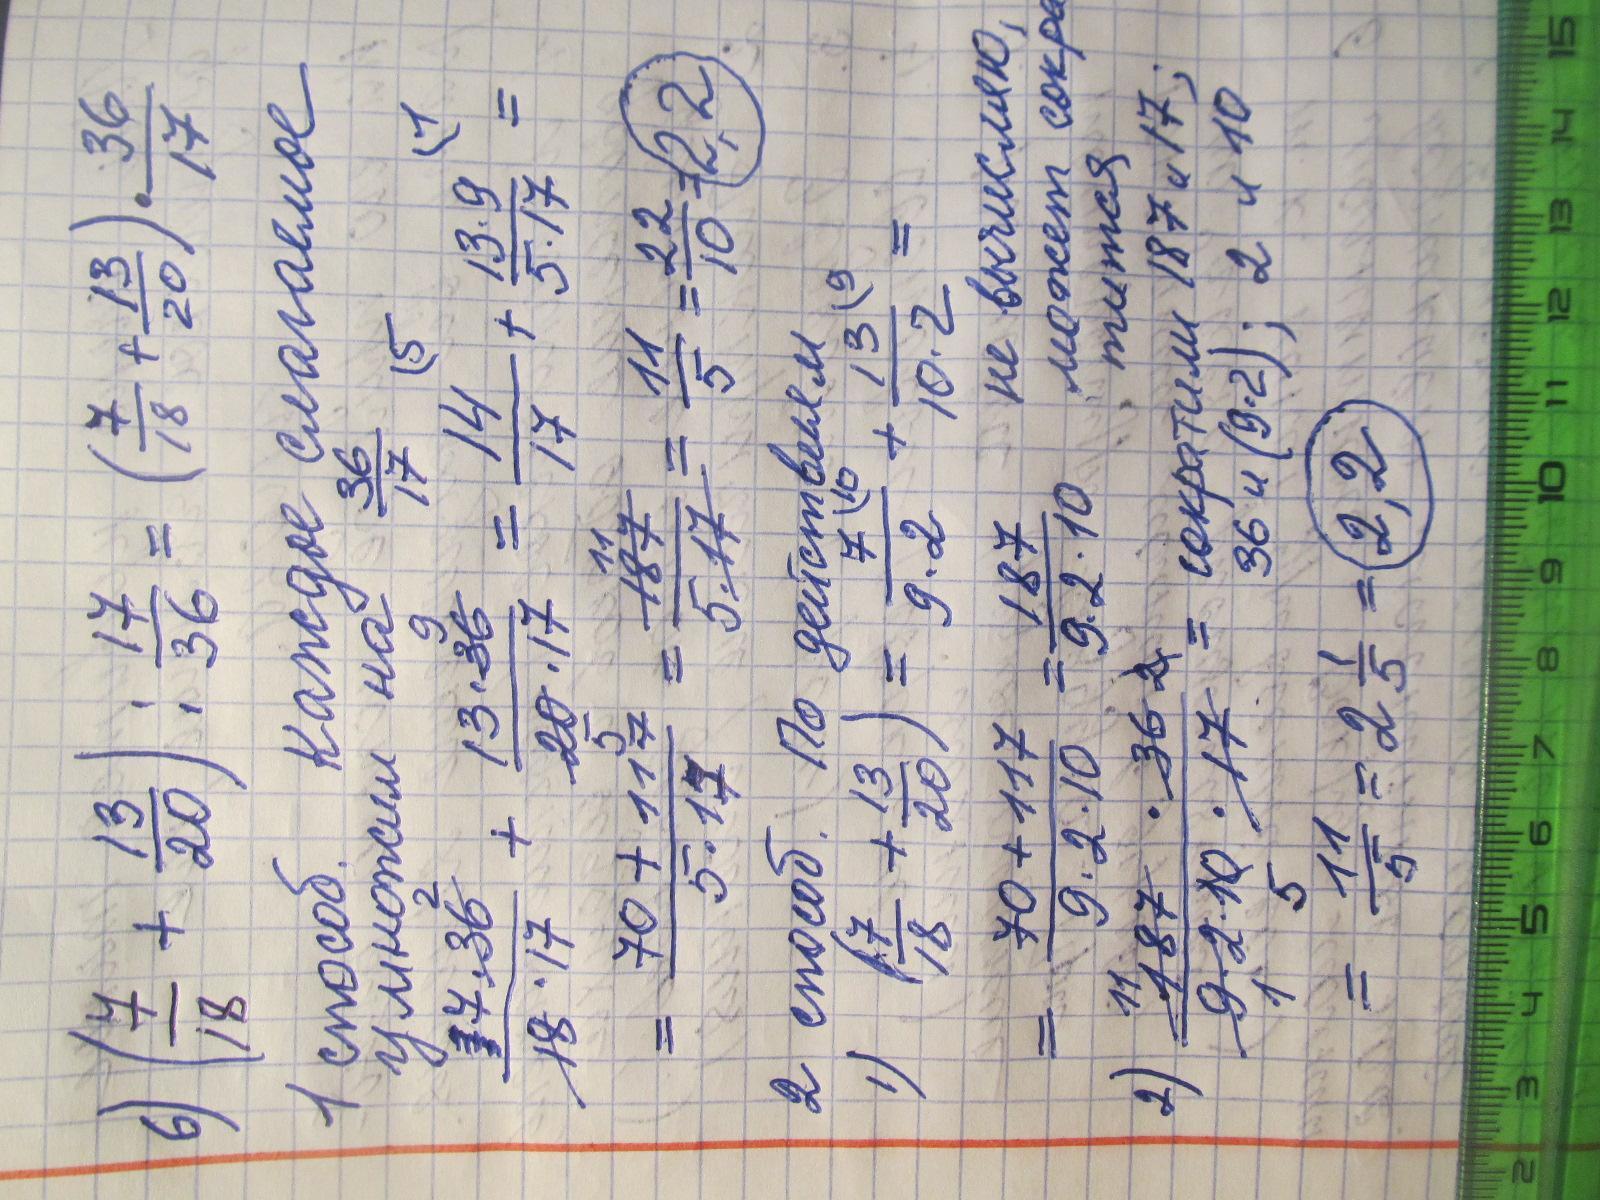 б) (7/18 + 13/20) : 17/36 = (7/18 + 13/20) · 36/17
1 способ. Каждое слагаемое
умножим на 36/17
7·36/18·17 + 13·36/20·17 = 14/17 + 13·9/5·17 =
= 70+117/5·17 = 187/5·17 = 11/5 = 22/10 = 2,2
2 способ. По действиям
1) (7/18 + 13/20) = 7/9·2 + 13/10·2 =
= 70+117/9·2·10 = 187/9·2·10 не вычисляю,
может сокра
тится
2) 187·36/9·2·10·17 = сократим 187 и 17;
36 и (9·2); 2 и 10
= 11/5 = 2 1/5 = 2,2
2 3 4 5 6 7 8 9 10 11 12 13 14 15